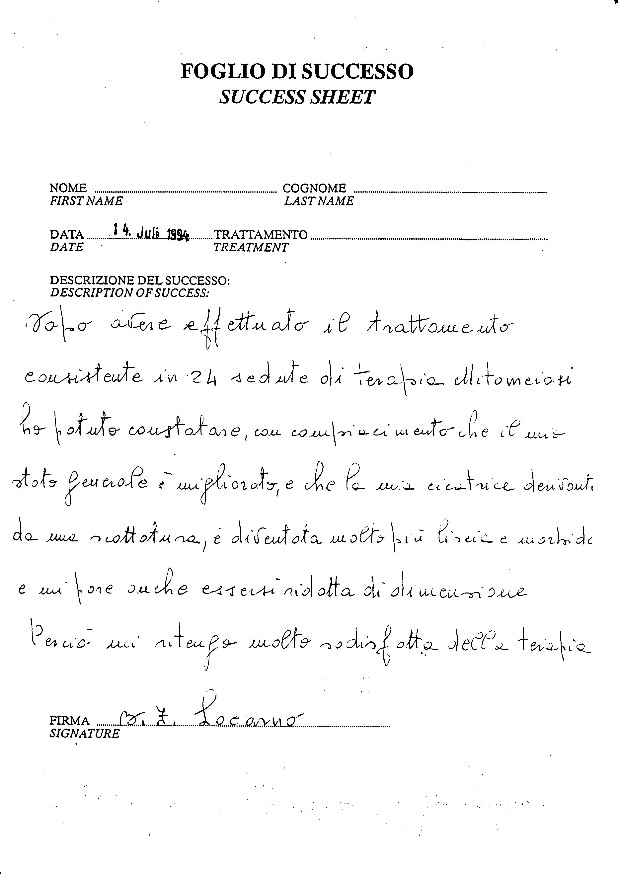 FOGLIO DI SUCCESSO
SUCCESS SHEET
NOME COGNOME
FIRST NAME LAST NAME
DATA 14. Juli 1994 TRATTAMENTO
DATE TREATMENT
DESCRIZIONE DEL SUCCESSO:
DESCRIPTION OF SUCCESS:
Dopo avere effettuato il trattamento
consistente in 24 sedute di terapia
ho potuto constatare, con compiacimento che il mio
stato generale è migliorato, e che la mia cicatrice derivante
da una scottatura, è diventata molto più liscia e morbida
e mi pare anche essersi ridotta di dimensione
Perciò mi ritengo molto sodisfatta della terapia
FIRMA Locarno
SIGNATURE